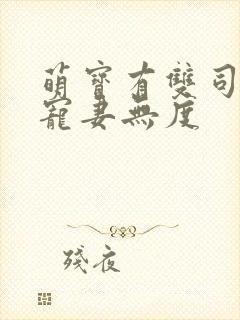 萌寶有雙司
寵妻無度
殘夜